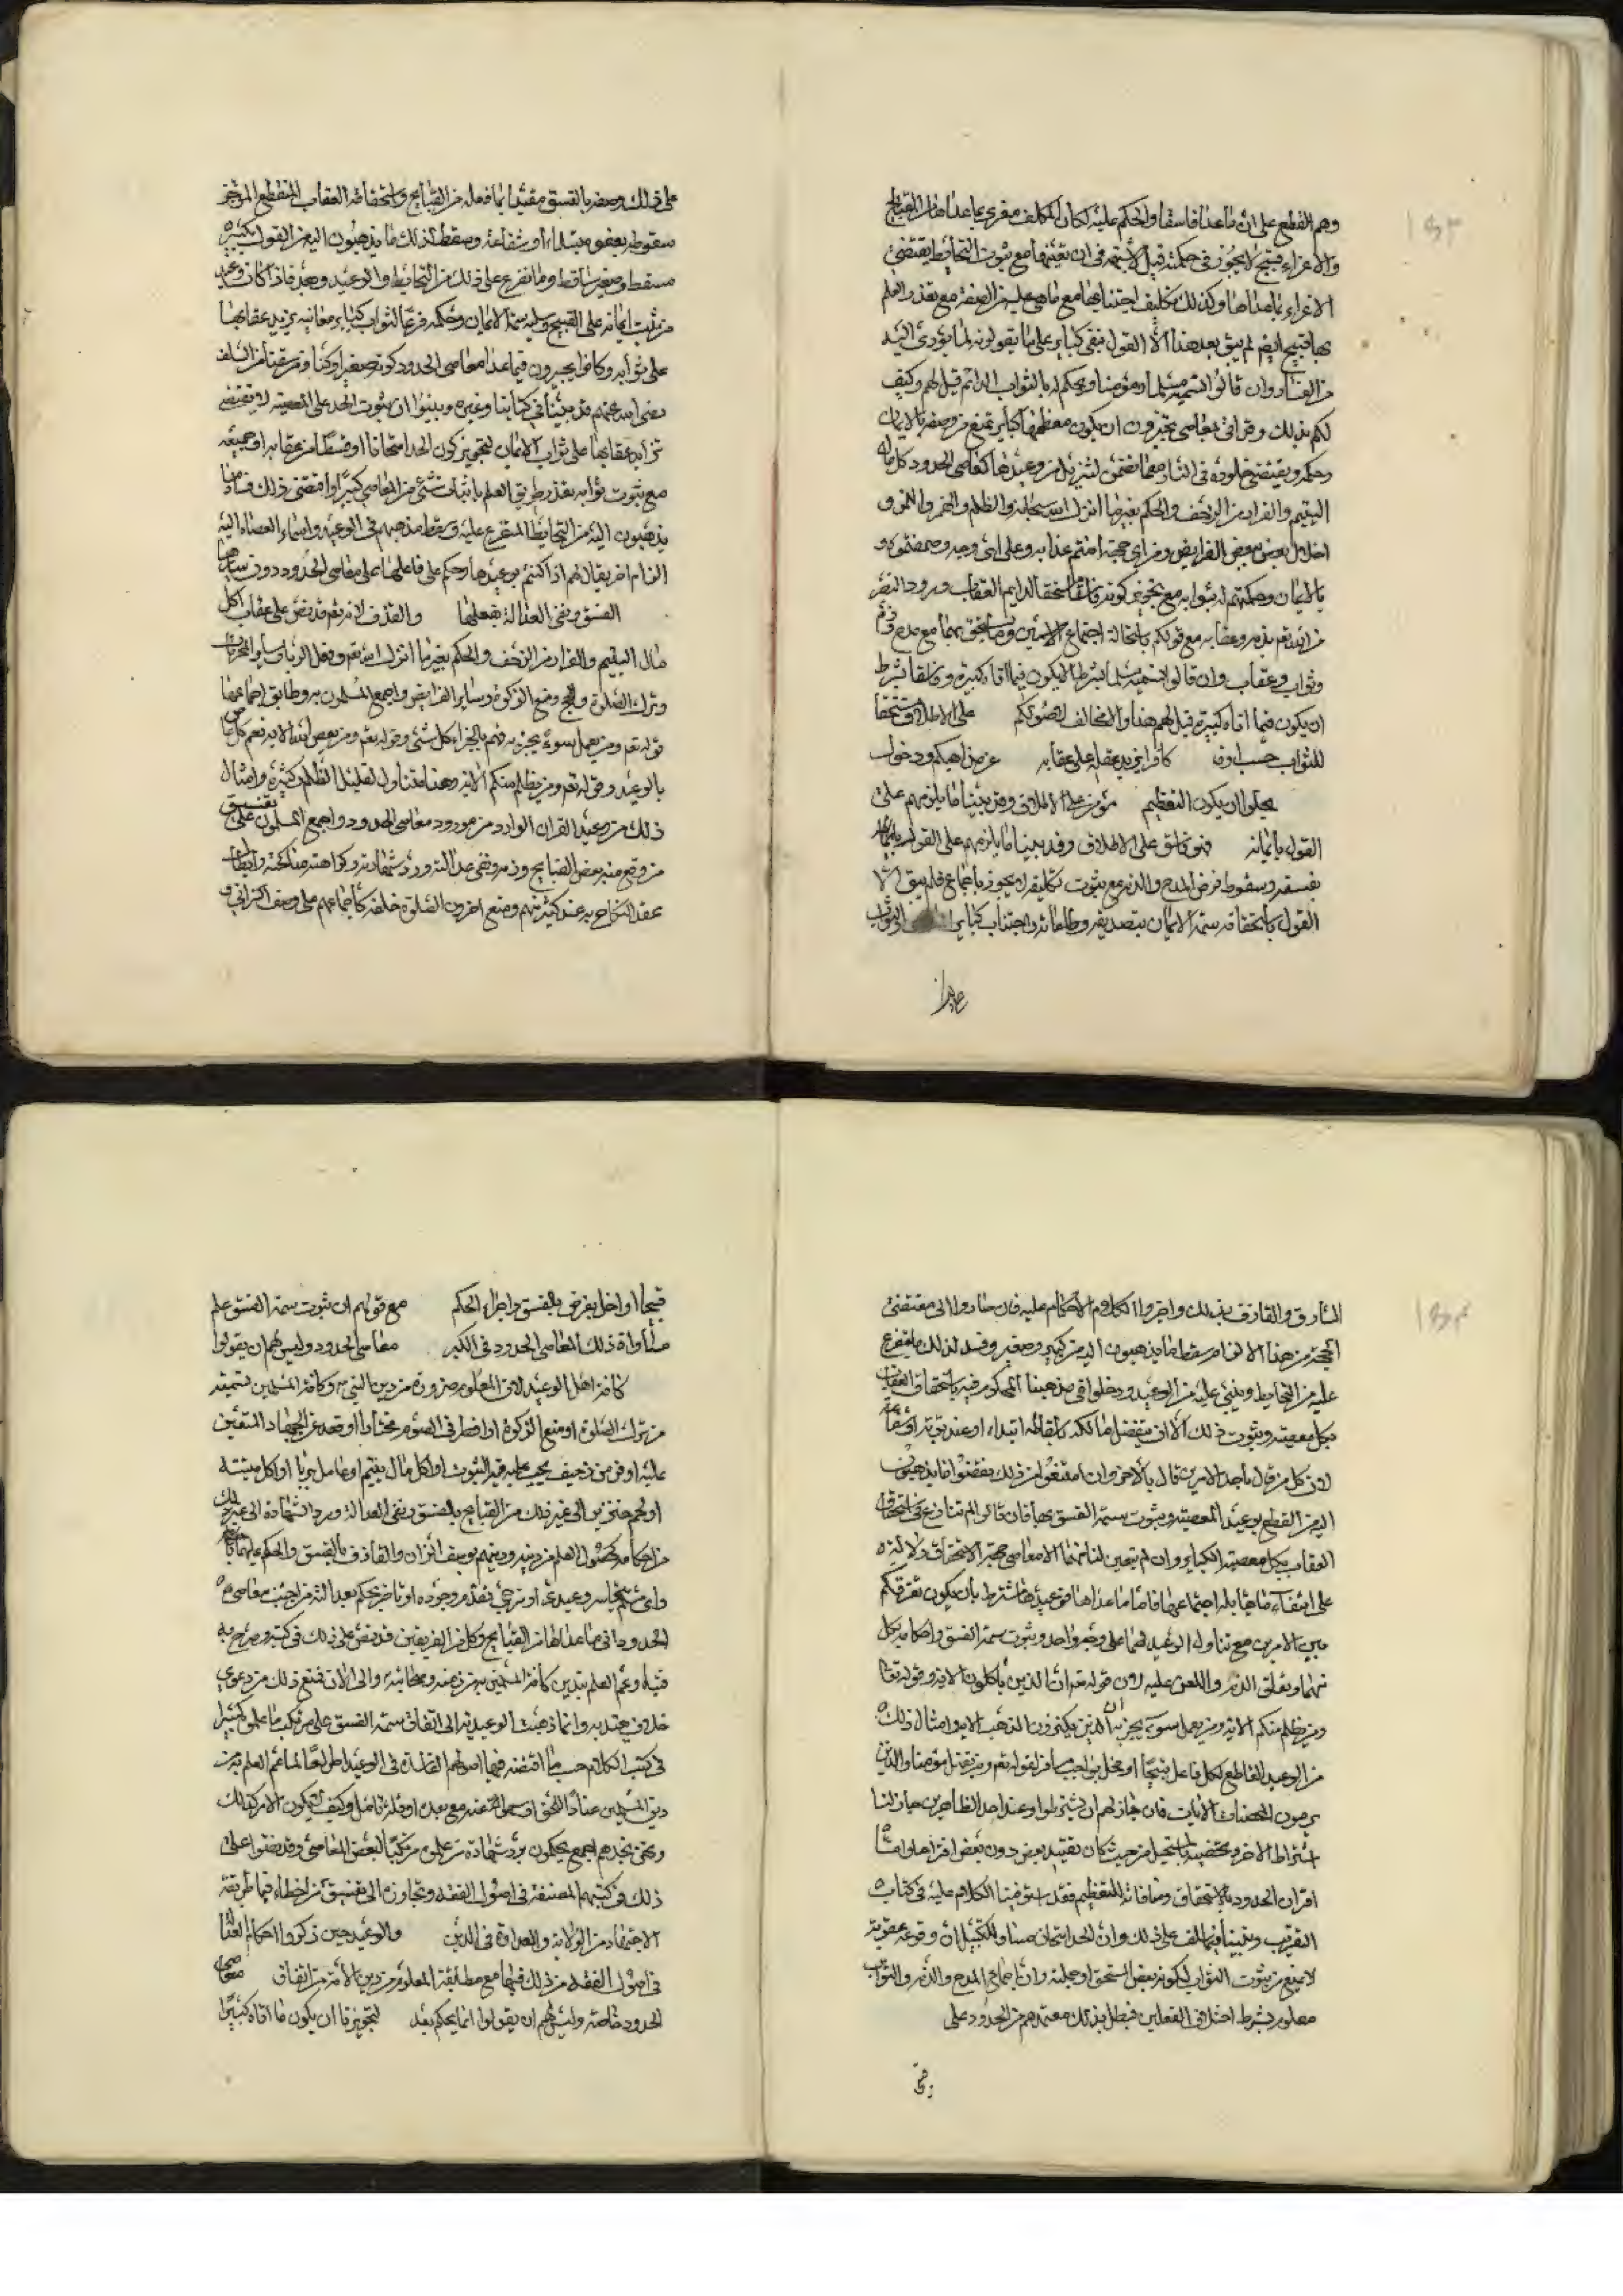 ١٥٣
وهم القطع على ان ما عداها فاسقا والحكم عليه لكان المكلف مغرى بما عداها من القبايح
والاغراء قبيح لا يجوز في حكمته قيل لا شبهه في ان تعينها مع ثبوت التحابط يقتضي
الاغراء بما عداها وكذلك تكليف اجتنابها مع ما هي عليه من الصفة مع تعذر العلم
بها قبيح ايضا لم يبق بعد هذا الا القول بنفي كباير على ما يقولونه لما يؤدي اليه
من الفساد وان قالوا اسميه مسلما ومؤمنا ويحكم له بالثواب الدائم قيل لهم وكيف
لكم بذلك وقد اتى بمعاصي تجوزون ان يكون معظمها كباير تمنع من وصفه بالايمان
وحكمه ويقتضي خلوده في النار مما تضمن التنزيل من وعيدها كمعاصي الحدود كل مال
اليتيم والفرار من الزحف والحكم بغير ما انزل الله سبحانه والظلم والخمر والغمز و
اخلال بعض بعض الفرايض ومن اي حجة امنتم عذابه وعلى اي وجه وصفتموه
بالايمان وحكمتم له بثوابه مع تجويز كونه فاسقا مستحقا لدايم العقاب وورود النص
من الله تعم بذمه وعقابه مع قولكم باستحالة اجتماع الاسمين وما يستحق بهما مع مدح وذم
وثواب وعقاب وان قالوا نسميه مسلما بشرط الا يكون فيما اتاه كبيرة وفاسقا بشرط
ان يكون فيما اتاه كبيرة قيل لهم هذا اولا مخالف لاصولكم على الاطلاق مستحقا
للثواب حسب او كافر يزيد عقله على عقابه عن مذاهبكم ودخول
يجعلوا ان يكون التعظيم مؤمن على الاطلاق وقد بينا ما يلزمهم على
القول بايمانه فهو فاسق على الاطلاق وقد بينا ما يلزمهم على القول
بفسقه وسقوط فرض المدح والذم مع ثبوت تكليفه لا يجوز باجماع فلم يبق الا
القول باستحقاقه سمة الايمان بتصديقه وطاعاته واجتناب كباير
على ذلك وصفه بالفسق مقيدا بما فعله من القبايح واستحقاقه العقاب المنقطع المرجو
سقوطه بعفو مبتدا او شفاعة وسقط لذلك ما يذهبون اليه من القول بكبيره
مسقط وصغير ساقط وما تفرع على ذلك من التحابط والوعيد وبعد فاذا كان وعيد
من ثبت ايمانه على القبيح وسلبه سمة الايمان وحكمه فرعا لثوابه كباير معاصيه يزيد عقابها
على ثوابه وكانوا يجيزون فيما عدا معاصي الحدود كونه صغيرا وكنا ومن سبقنا من السلف
رضي الله عنهم قد بينا في كتابنا وغيره وبينوا ان ثبوت الحد على المعصية لا يقتضي
تزايد عقابها على ثواب الايمان لتجويز كون الحد امتحانا او قسطا من عقابه او جميعه
مع ثبوت ثوابه تعذر طريق العلم باثبات شئ من المعاصي كبيرا واقتضى ذلك فساد ما
يذهبون اليه من التحابط المتفرع عليه وسقط مذهبهم في الوعيد واسماء العصاة اليه
الزام اخر يقال لهم اذا كنتم بوعيدها وحكم على فاعلها على معاصي الحدود دون ساير ما
الفسق ونفي العدالة بفعلها والقذف لانه تعم قد نص على عقاب اكل
مال اليتيم والفرار من الزحف والحكم بغير ما انزل الله تعم وفعل الربا وساير المحرمات
وترك الصلوة والحج ومنع الزكوة وساير الفرايض واجمع المسلمون به وطابق اجماعها
قوله تعم ومن يعمل سوء يجز به فعم بالجزاء كل شئ وقوله تعم ومن يعص الله الاية نعم كل عاص
بالوعيد وقوله تعم ومن يظلم منكم الاية وهذا متناول لقليل الظلم وكثيره وامثال
ذلك من وعيد القران الوارد من مورود معاصي الحدود واجمع المسلمون على تفسيق
من وقع منه بعض القبايح وذمه ونفي عدالته ورد شهادته وكراهته مناكحته وابطال
عقد النكاح به عند كثير منهم ومنع اخرون الصلوة خلفه كاجماعهم على وصف الزاني و
١٥٤
السارق والقاذف بذلك واجروا الكل وم الاحكام عليه فان صاروا الى مقتضى
الحجة من هذا الالزام سقط ما يذهبون اليه من كبير وصغير وفسد لذلك ما يتفرع
عليه من التحابط ويبنى عليه من الوعيد ودخلوا في مذهبنا المحكوم فيه باستحقاق العقاب
بكل معصية وثبوت ذلك الا ان يتفضل مالكه باسقاطه ابتداء او عند توبة او شفاعة
لان كل من قال باحد الامرين قال بالاخر وان امتنعوا من ذلك نقضوا ما يذهبون
اليه من القطع بوعيد المعصية وثبوت سمة الفسق بها فان قالوا لم نتنازع في استحقاق
العقاب بكل معصية الكباير وان لم يتعين لنا منها الا معاصي حجة الاستحقاق ولا لتنه
على انتفاء ما يقابله اجتماعها فاما ما عداها فوعيدها مشترط بان يكون تفرقكم
بين الامرين مع تناول الوعيد لهما على وجه واحد وثبوت سمة الفسق واحكامه بكل
منهما وتعلق الذم واللعن عليه لان قوله تعم ان الذين ياكلون الاية وقوله تعم
ومن يظلم منكم الاية ومن يعمل سوء يجز به ان الذين يكنزون الذهب الاية وامثال ذلك
من الوعيد القاطع لكل فاعل قبيحا او مخل بواجب مساو لقوله تعم ومن يقتل مؤمنا والذين
يرمون المحصنات الايات فان جاز لهم ان يشترطوا وعند احد الظاهرين جاز لنا
اشتراط الاخر وتخصيصه يستحيل من حيث كان تقييد بعض دون بعض افتراها واما
اقتران الحدود بالاستحقاق ومنافاته للتعظيم فقد استوفينا الكلام عليه في كتاب
التقريب وبينا على ذلك وان الحد امتحان مساو للتكبيل ان وقوعه عقوبة
لا يمنع من ثبوت الثواب لكونه بعض المستحق او جملته وان اجماع المدح والذم والثواب
معلوم بشرط اختلاف الفعلين فبطل بذلك معتمدهم من الحدود على
قبيحا او اخل بفرض بالفسق واجراء الحكم مع قولهم ان ثبوت سمة الفسق علم
مساواة ذلك لمعاصي الحدود في الكبر معاصي الحدود وليس لهم ان يقولوا
كافة اهل الوعيد لان المعلوم ضرورة من دين النبي ص وكافة المسلمين تسمية
من ترك الصلوة او منع الزكوة او افطر في الصوم مختارا او قعد عن الجهاد المتعين
عليه او فر من زحف يجب عليه فيه الثبوت او اكل مال يتيم او عامل بربا او اكل ميتة
او لحم خنزير الى غير ذلك من القبايح بالفسق ونفي العدالة ورد الشهادة الى غير ذلك
من احكامه كحصول العلم من دينه ودينهم بوصف الزان والقاذف بالفسق والحكم عليهما
واي متكلم يتجاسر وعيدي او مرجي تقدم وجوده او تاخر يحكم بعدالة من اجتنب معاصي
الحدود واتى ما عداها من القبايح وكل من الفريقين قد نص على ذلك في كتبه وصرح به
فتياه وعم العلم بتدين كافة المسلمين به من زمنه وصحابته والى الان فمنع ذلك من دعوى
خلاف يعتد به وانما ذهبت الوعيدية الى اتفاق سمة الفسق على مرتكب ما علموه كبيرا
في كتب الكلام حسب ما اقتضته فيها اصولهم الفاسدة في الوعيد اطراحا لما عم العلم به من
دين المسلمين عنادا للحق او سهوا عنه مع بعده او قلة تامل وكيف يكون الامر كذلك
ونحن نجدهم اجمع يحكمون برد شهادة من علموه مرتكبا لبعض المعاصي وقد نصوا على
ذلك في كتبهم المصنفة في اصول الفقه وتجاوزه الى تفسيق من اخطاء فيما طريقه
الاجتهاد من الولاية والعداوة في الدين والوعيد حين ذكروا احكام
في اصول الفقه من ذلك فيها مع مطابقة المعلوم من دين الامة من اتفاق معاصي
الحدود خاصة وليس لهم ان يقولوا انما يحكم بعد لتجويزنا ان يكون ما اتاه كبيرا